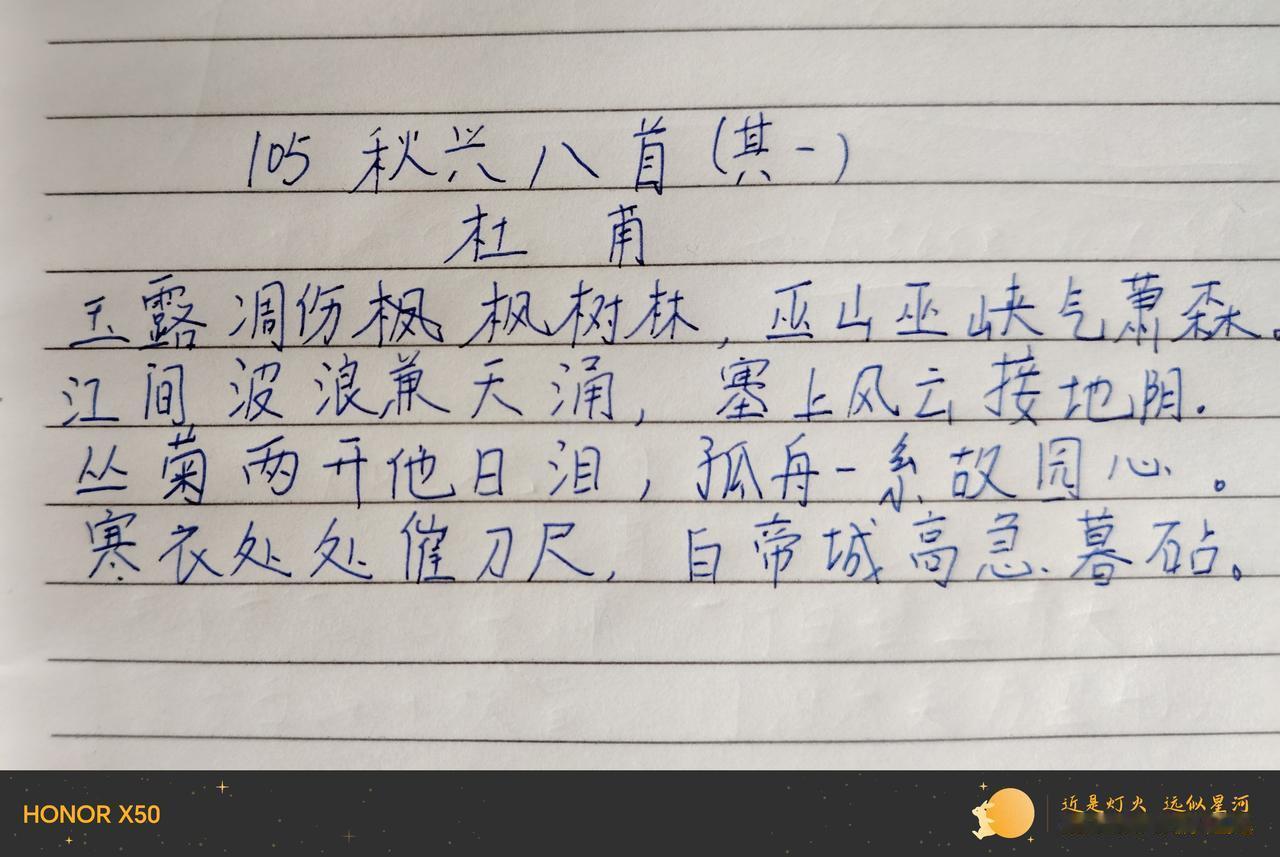 105 秋兴八首(其一)
杜甫
玉露凋伤枫枫树林,巫山巫峡气萧森。
江间波浪兼天涌,塞上风云接地阴.
丛菊两开他日泪,孤舟一系故园心。
寒衣处处催刀尺,白帝城高急暮砧。
HONOR X50
近是灯火 远似星河